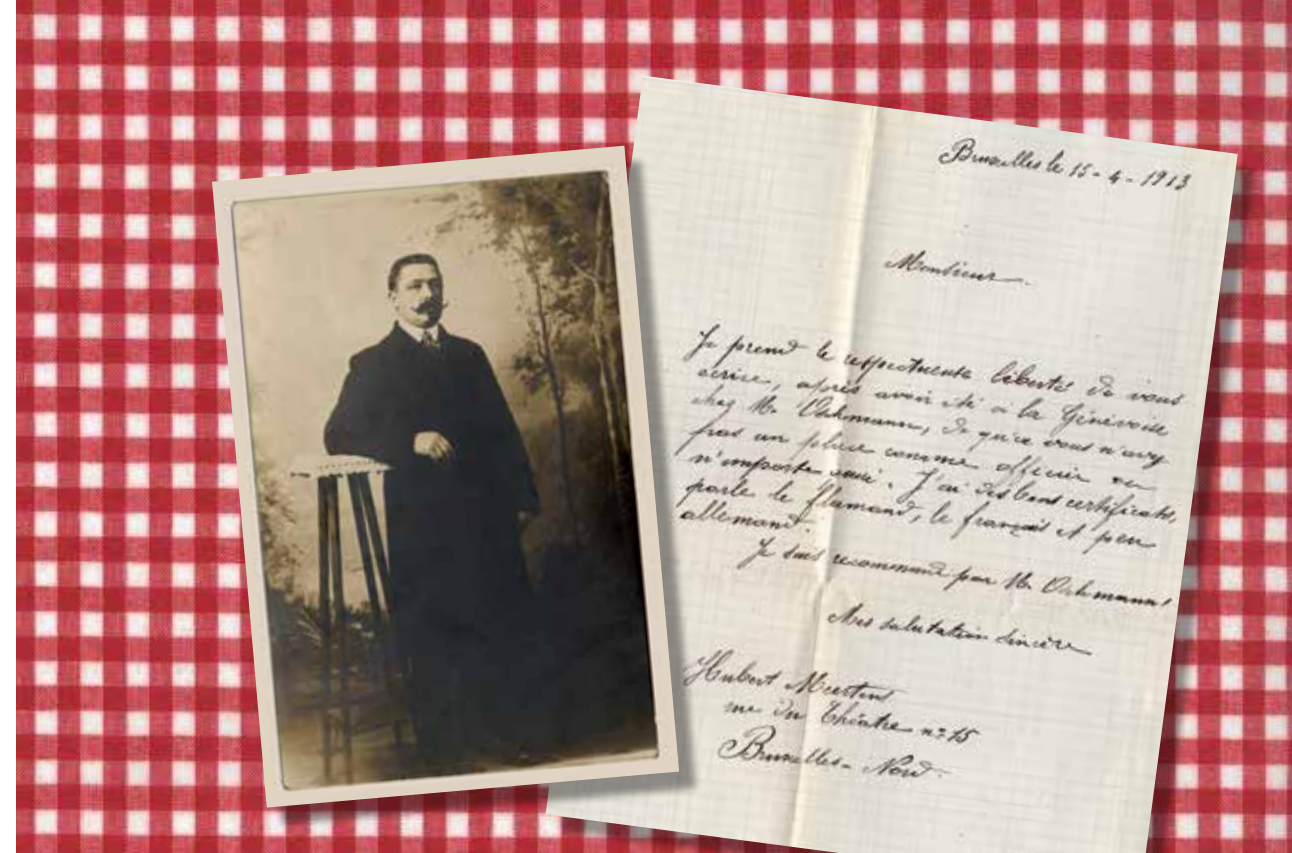 Bruxelles le 15-4-1913
Monsieur.
Je prend le respectueuse liberté de vous
écrire, après avoir été a la Génévoise
chez M. Ochmann, de qu'ce vous n'avez
pas un place comme officier ou
n'importe quoi. J'ai des bons certificats,
parle le flamand, le français et peu
allemand.
Je suis recommandé par M. Ochmann!
Mes salutation sincère
Hubert Meertens
rue du Théatre no 15
Bruxelles-Nord.